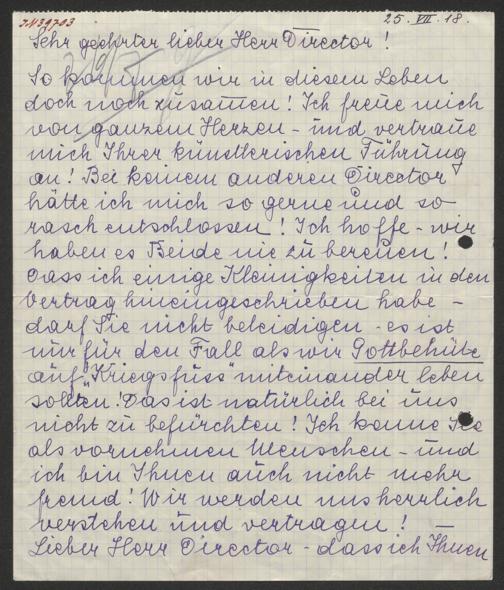 J.N 39703
25. VII. 18.
Sehr geehrter lieber Herr Director!
So kommen wir in diesem Leben
doch noch zusam̄en! Ich freue mich
von ganzem Herzen - und vertraue
mich Ihrer künstlerischen Führung
an! Bei keinem anderen Director
hätte ich mich so gerne und so
rasch entschlossen! Ich hoffe - wir
haben es Beide nie zu bereuen!
Dass ich einige Kleinigkeiten in den
Vertrag hineingeschrieben habe -
darf Sie nicht beleidigen - es ist
nur für den Fall als wir Gottbehüte
auf "Kriegsfuss" miteinander leben
sollten! Das ist natürlich bei uns
nicht zu befürchten! Ich kenne Sie
als vornehmen Menschen - und
ich bin Ihnen auch nicht mehr
fremd! Wir werden uns herrlich
verstehen und vertragen! -
Lieber Herr Director - dass ich Ihnen